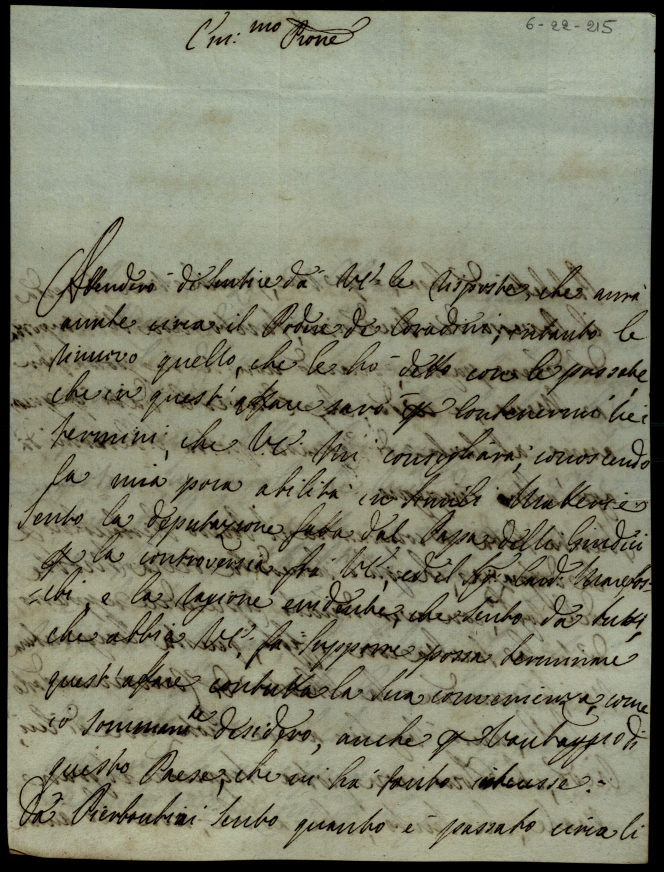 6-22-215
C͞m:mo Prone
Attenderò di sentire da V.E. le risposte, che avrà
avute circa il Podere de Coradini, intanto le
rinuovo quello, che le hò detto con le passate,
che in quest'affare sarò p contenermi nei
termini, che V.E. mi consigliarà, conoscendo
la mia poca abilità in simili materie
Sento la deputazione fatta dal Papa delli Giudici
p la controversia frà V.E., ed il Sr Card. Marefos-
=chi, e la ragione evidente, che sento da tutti
che abbia V.E. fa supporre possa terminare
quest'affare con tutta la sua convenienza, come
io sommamte desidero, anche p vantaggio di
questo Paese, che vi hà tanto interesse.
Da Pierbontini sento quanto è passato circa li